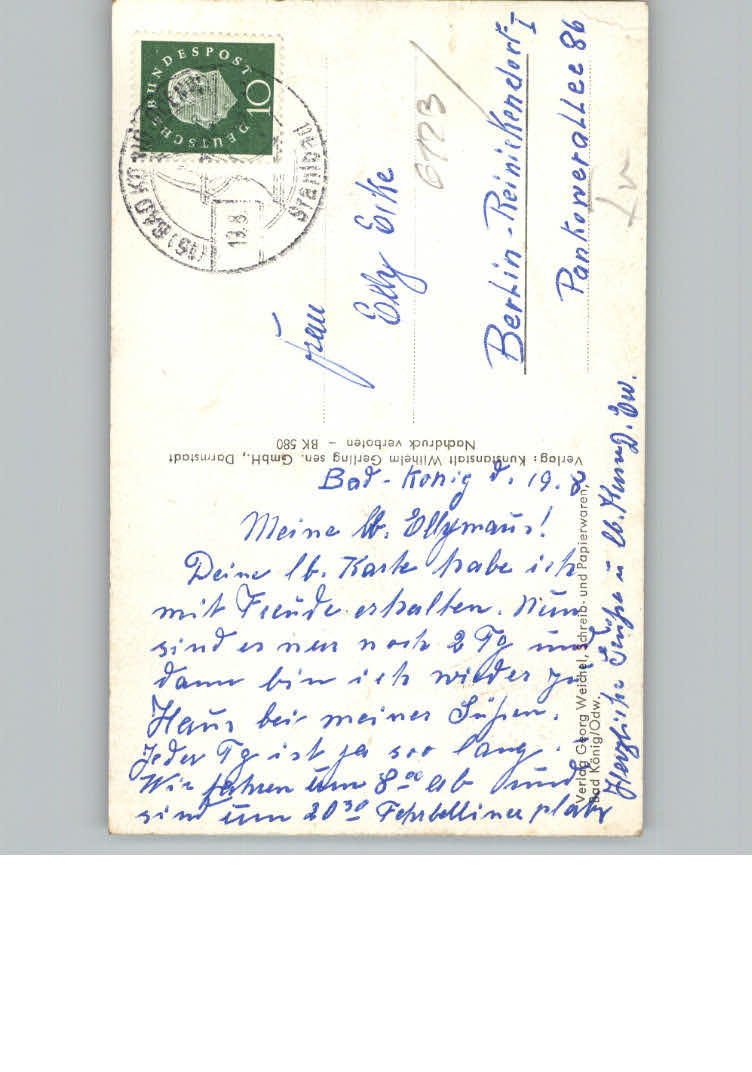 Bad-König d. 19.8
Meine lb. Ellymaus!
Deine lb. Karte habe ich
mit Freude erhalten. Nun
sind es nur noch 2 Tg und
dann bin ich wieder zu
Haus bei meiner Süßen.
Jeder Tg ist ja soo lang.
Wir fahren um 8⁰⁰ ab und
sind um 20³⁰ Fehrbelliner platz
Herzliche Grüße u lb.
Verlag Georg Weichel, Schreib- und Papierwaren,
Bad König/Odw.
Verlag: Kunstanstalt Wilhelm Gerling sen. GmbH., Darmstadt
Nachdruck verboten - BK 580
DEUTSCHE BUNDESPOST
10
(16) BAD KÖNIG
Stahlbad
Frau
Elly
6123
Berlin-Reinickendorf I
Pankowerallee 86